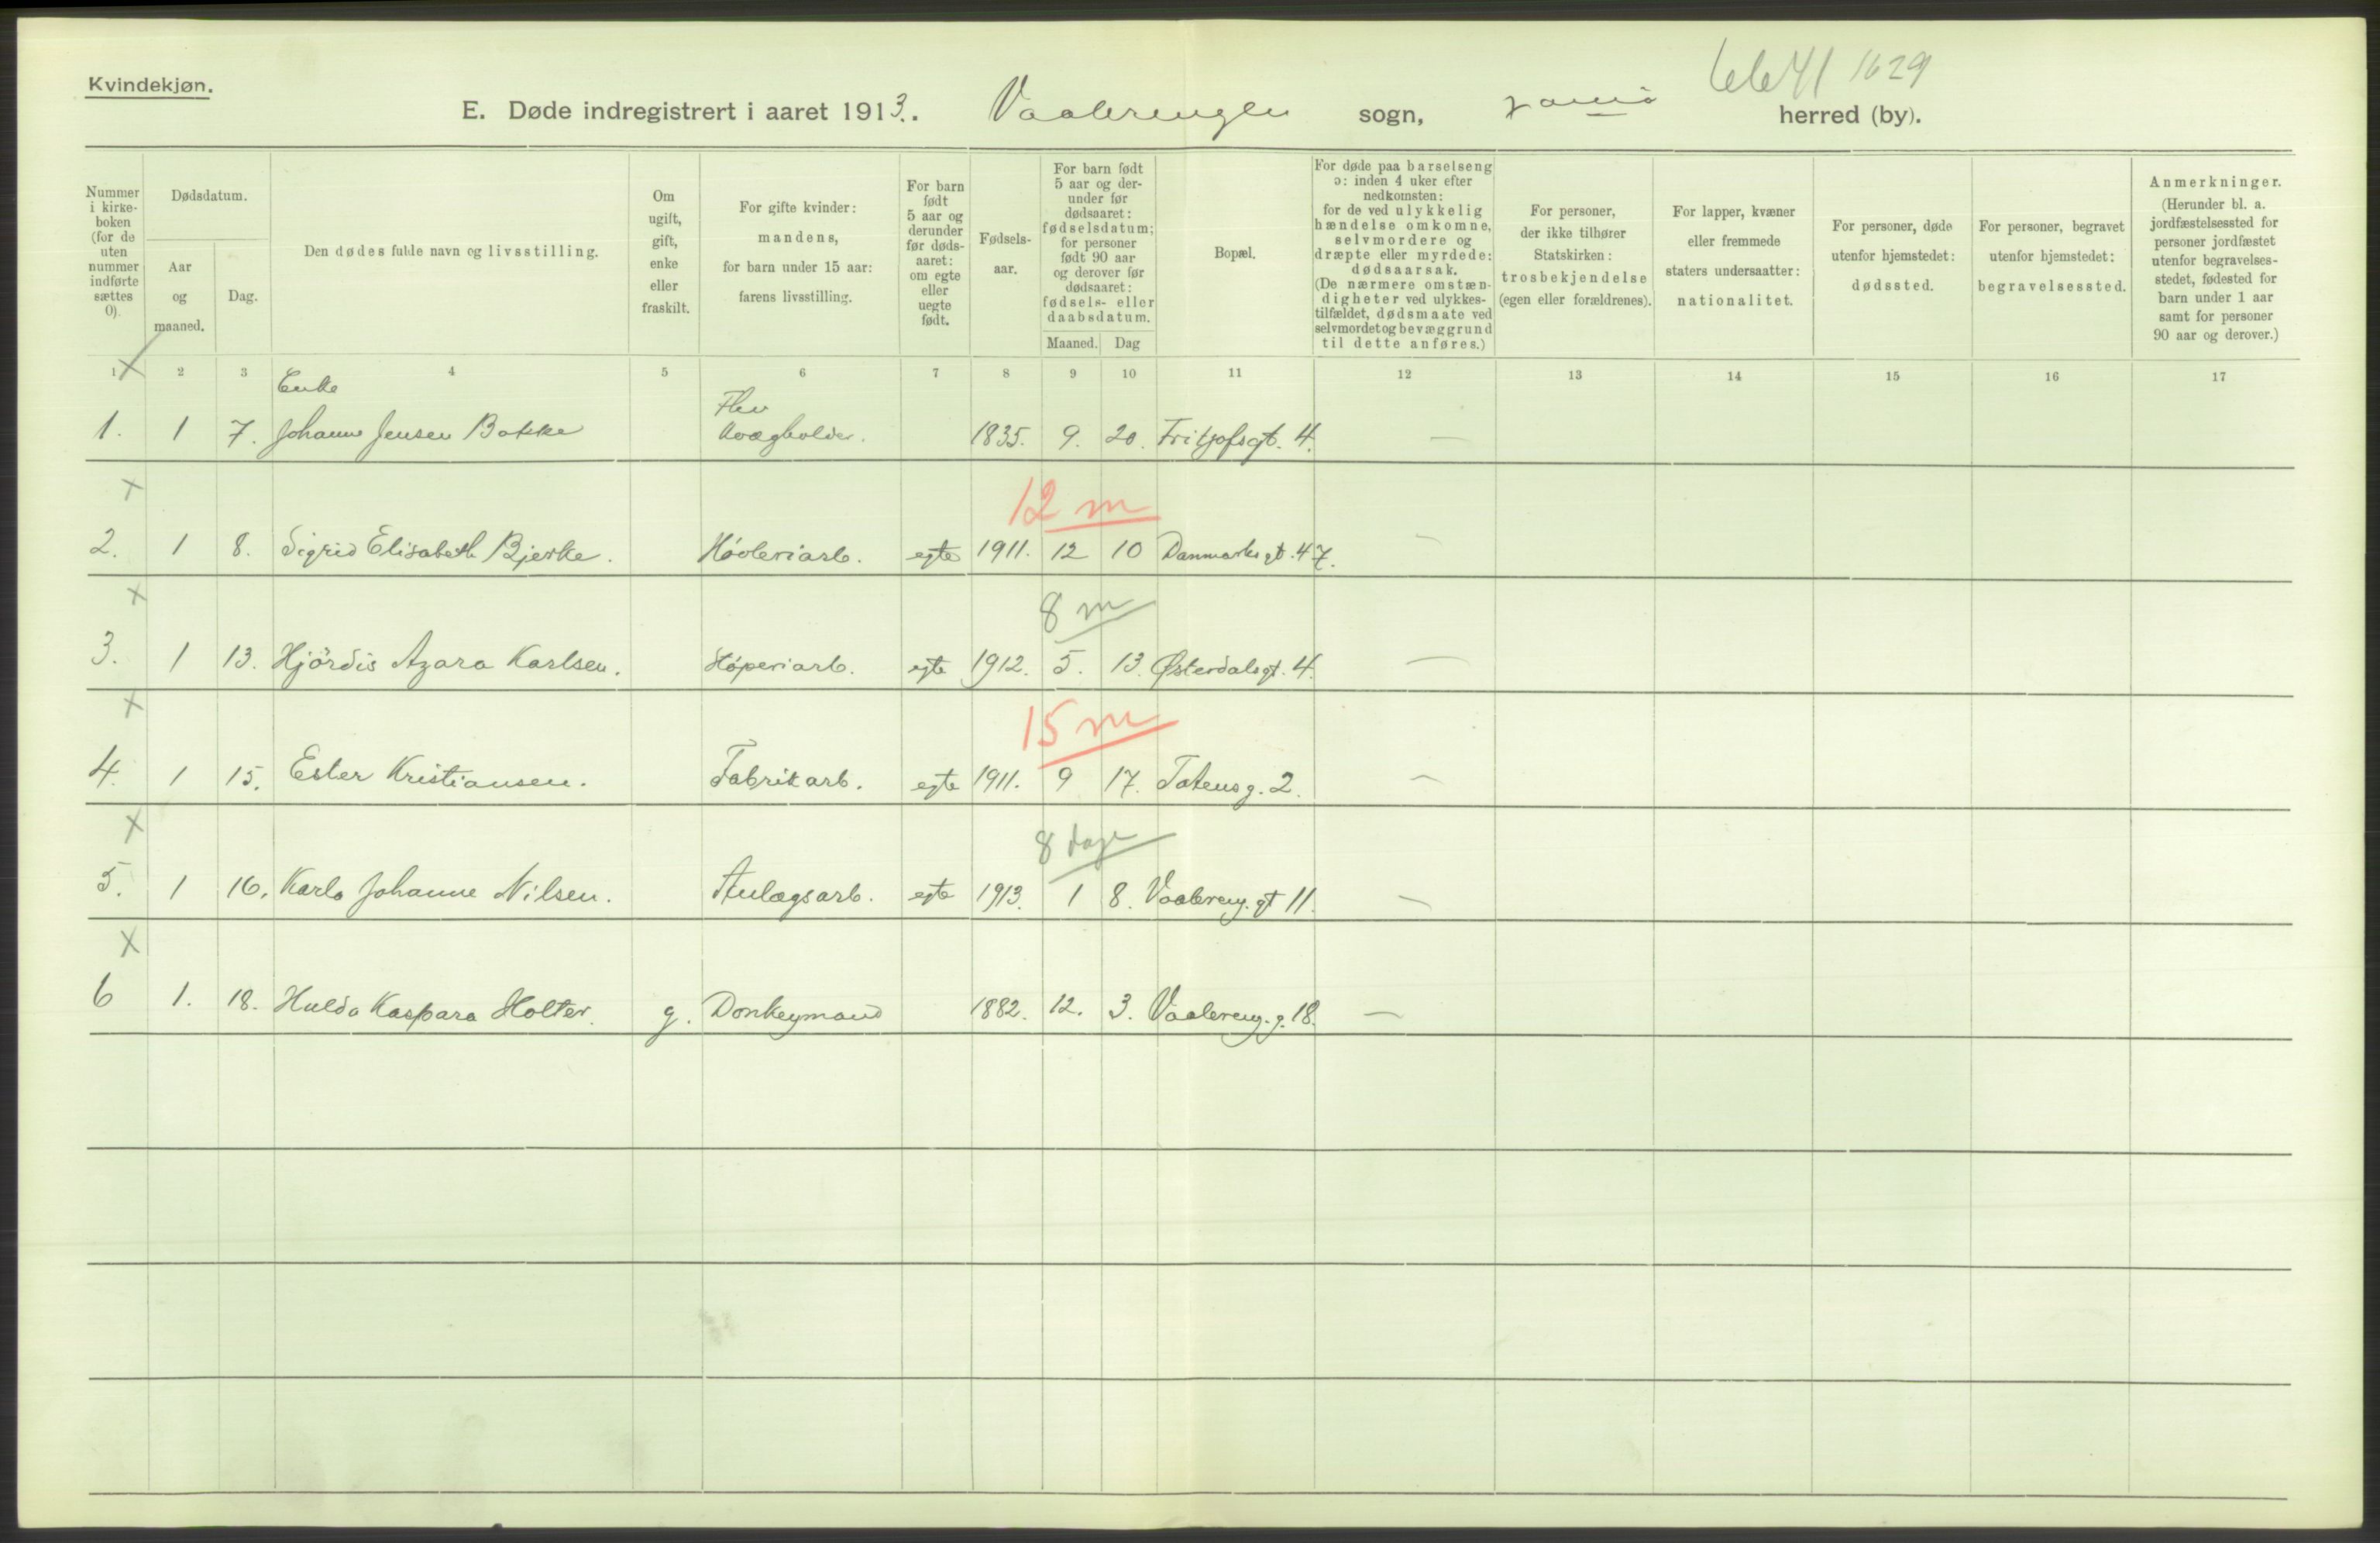 Kvindekjøn.
6641 1629
E. Døde indregistrert i aaret 1913. Vaalerengen sogn, herred (by).
Nummer i kirke- boken (for de uten nummer indførte sættes 0).
Dødsdatum.
Aar og maaned.
Dag.
Den dødes fulde navn og livsstilling.
Om ugift, gift, enke eller fraskilt.
For gifte kvinder: mandens, for barn under 15 aar: farens livsstilling.
For barn født 5 aar og derunder før døds- aaret: om egte eller uegte født.
Fødsels- aar.
For barn født 5 aar og der- under før dødsaaret: fødselsdatum; for personer født 90 aar og derover før dødsaaret: fødsels- eller daabsdatum.
Maaned. Dag
Bopæl.
For døde paa barselseng ɔ: inden 4 uker efter nedkomsten: for de ved ulykkelig hændelse omkomne, selvmordere og dræpte eller myrdede: dødsaarsak. (De nærmere omstæn- digheter ved ulykkes- tilfældet, dødsmaate ved selvmordet og bevæggrund til dette anføres.)
For personer, der ikke tilhører Statskirken: trosbekjendelse (egen eller forældrenes).
For lapper, kvæner eller fremmede staters undersaatter: nationalitet.
For personer, døde utenfor hjemstedet: dødssted.
For personer, begravet utenfor hjemstedet: begravelsessted.
Anmerkninger. (Herunder bl. a. jordfæstelsessted for personer jordfæstet utenfor begravelses- stedet, fødested for barn under 1 aar samt for personer 90 aar og derover.)
1 2 3 4 5 6 7 8 9 10 11 12 13 14 15 16 17
Enke
1. 1 7. Johanne Jensen Bakke Kvægholder. 1835. 9. 20. Fritjofsgt. 4. —
12 m
2. 1 8. Sigrid Elisabeth Bjerke. Høvleriarb. egte 1911. 12 10 Danmarks gt. 47. —
8 m
3. 1 13. Hjördis Azara Karlsen. Støperiarb. egte 1912. 5. 13. Østerdalsgt. 4. —
15 m
4. 1 15. Ester Kristiansen. Fabrikarb. egte 1911. 9 17. Totensg. 2. —
8 dage
5. 1 16. Karla Johanne Nilsen. Anlægsarb. egte 1913. 1 8. Vaalereng. gt 11. —
6 1. 18. Hulda Kaspara Holter. g. Donkeymand 1882. 12. 3. Vaalereng. g. 18. —